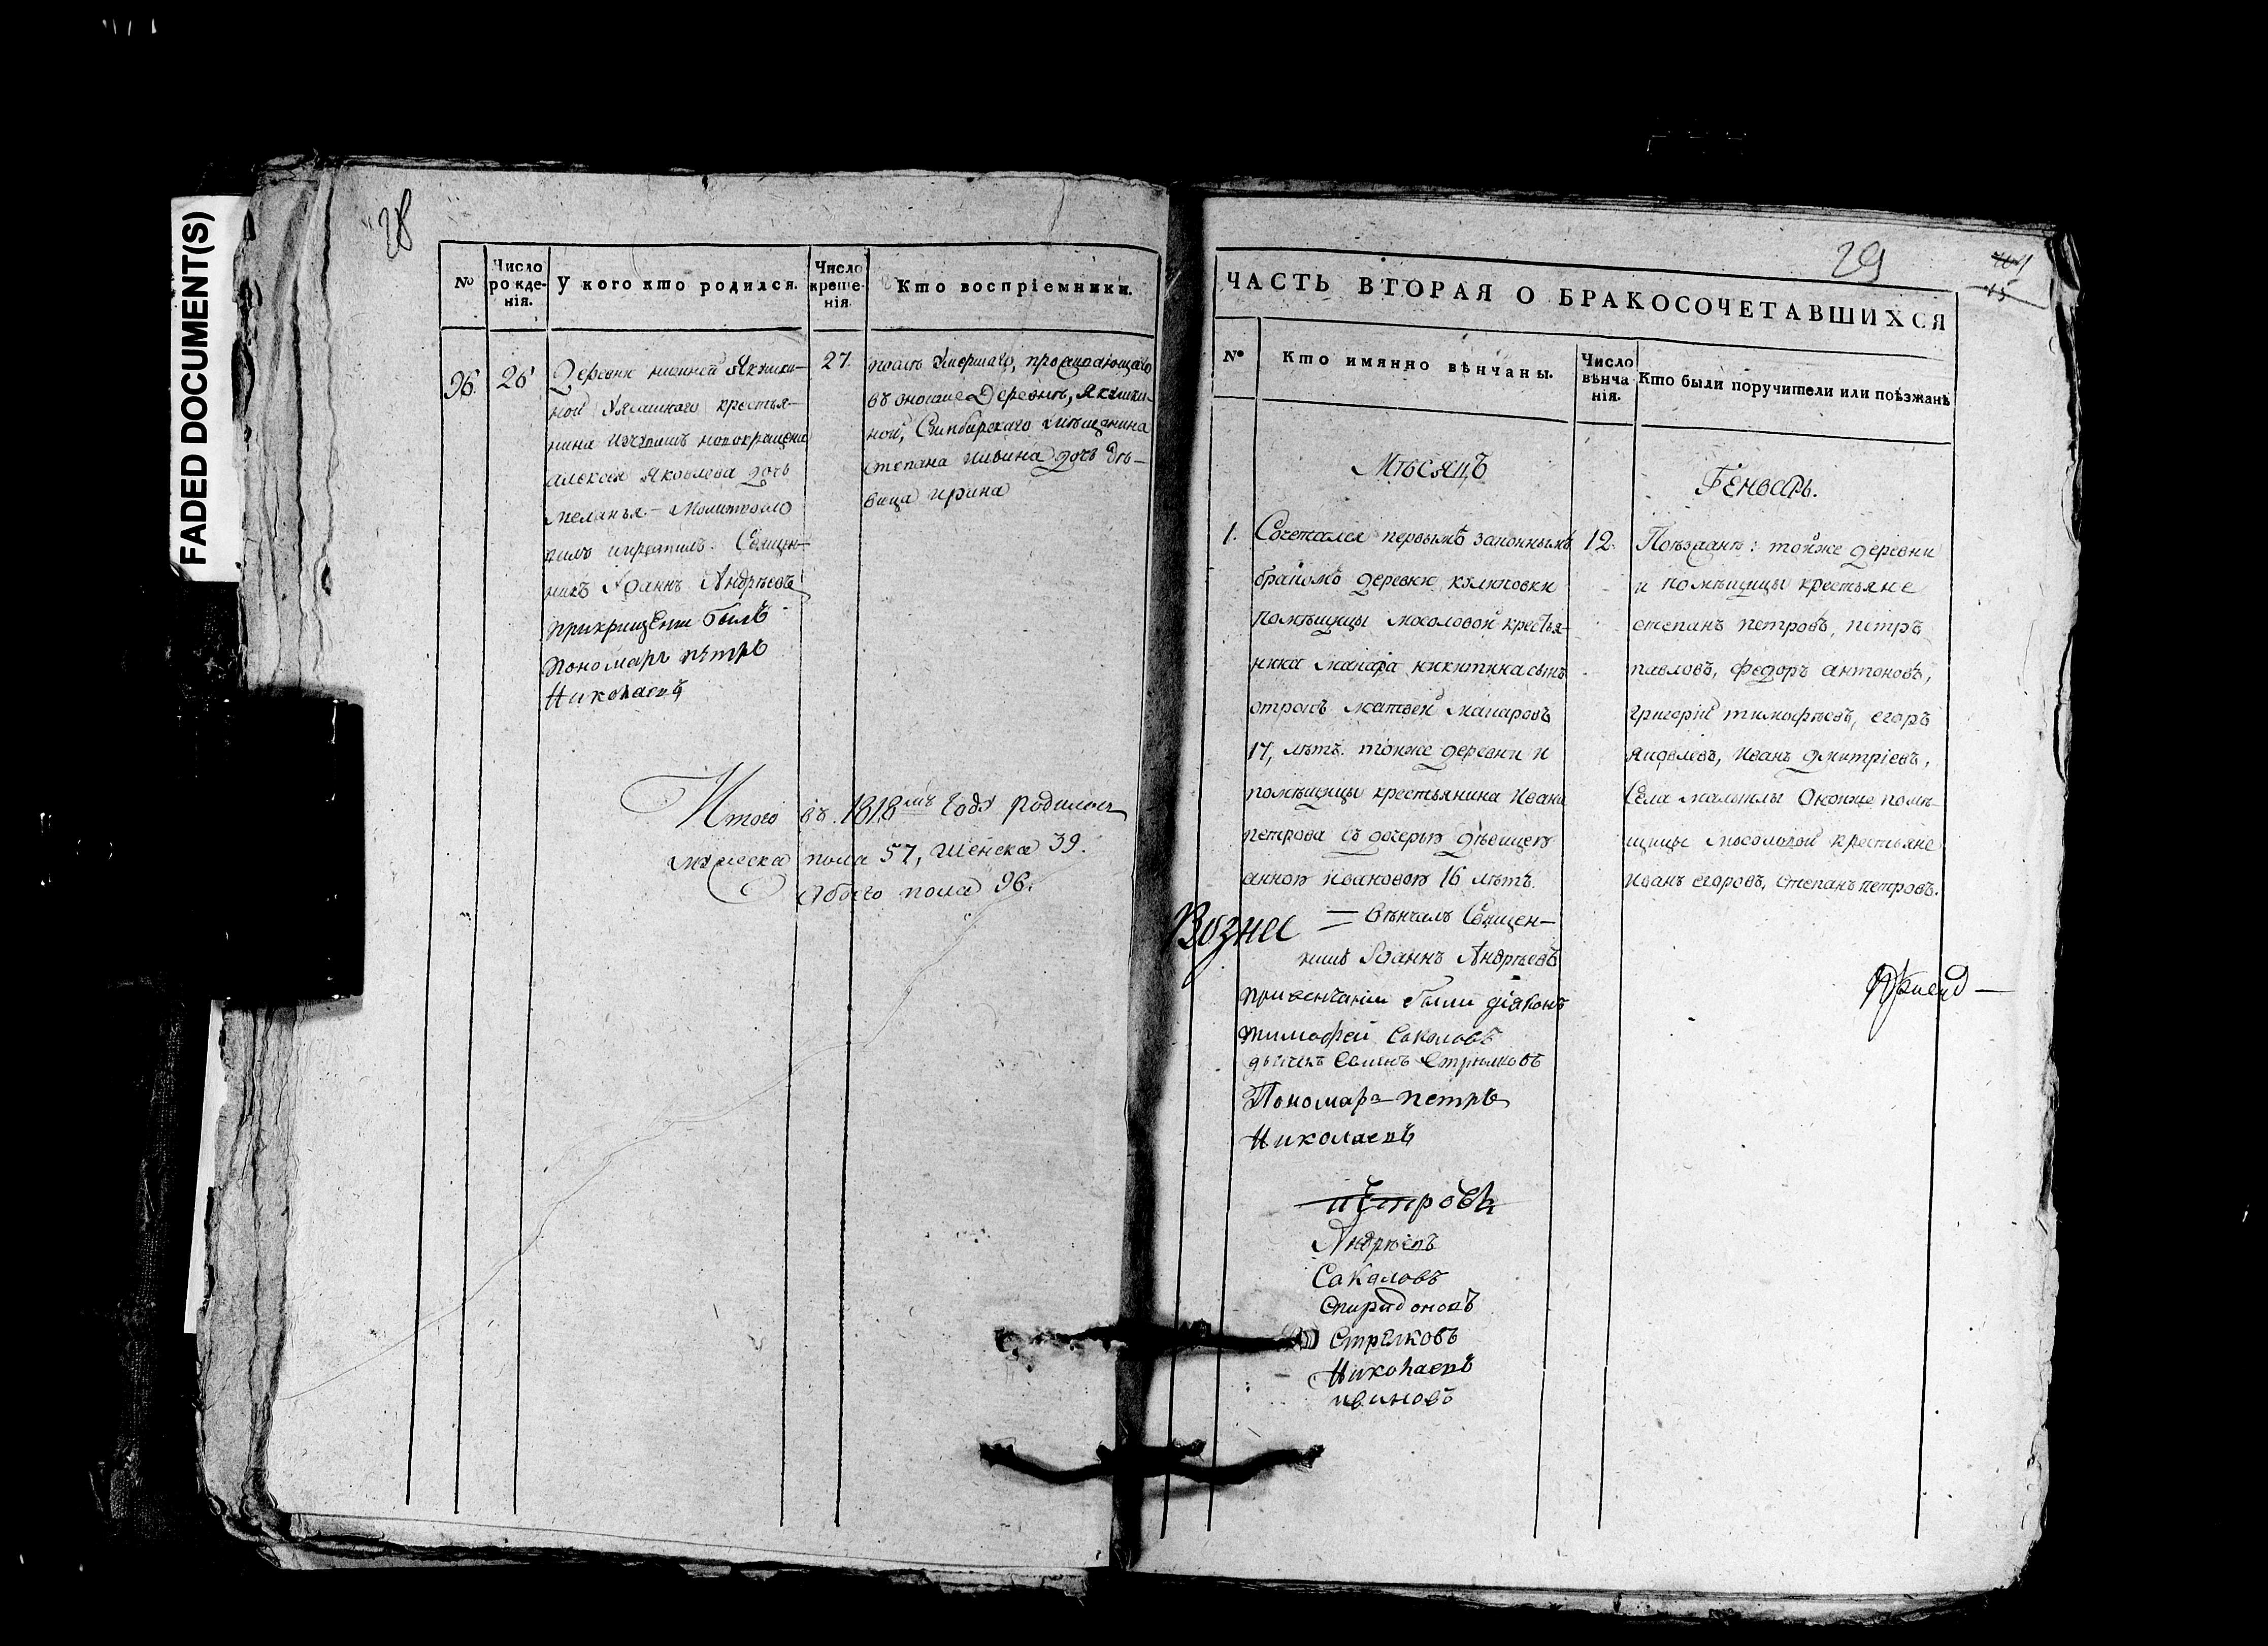 FADED DOCUMENT(S)
28
№
Число рожденія.
У кого кто родился.
Число крещенія
Кто воспріемники.
96.
26
Деревни нижней Якушки-
ной крестья-
нина новокрещена
алексея Яковлева дочь
меланья. – Молитвовалъ
и крестилъ. Священ-
никъ Іоаннъ Андрѣевъ
прикрищении былъ
пономарь пѣтръ
Николаевъ
27.
умершаго,
въ Деревнѣ, Якушки-
ной, Синбирскаго мѣщанина
степана дочь дѣ-
вица ирина
Итого въ 1818мъ году родилось
мужеска пола 57, женска 39.
Обоего пола 96.
29
15
ЧАСТЬ ВТОРАЯ О БРАКОСОЧЕТАВШИХСЯ
№
Кто имянно вѣнчаны.
Число вѣнчанія.
Кто были поручители или поѣзжанѣ
Мѣсяцъ
Генварь.
1.
Сочетался первымъ законнымъ
бракомъ деревни
помѣщицы мосоловой крестья-
нина макара никитина сынъ
отрокъ матвей макаровъ
17, лѣтъ. тойже деревни и
помѣщицы крестьянина Ивана
петрова съ дочерью дѣвицею
анною ивановою 16 лѣтъ.
Возне = вѣнчалъ Священ-
никъ Іоаннъ Андрѣевъ
привенчаніи были діяконъ
тимофей Сокаловъ
дьячекъ Семенъ Стрѣлковъ
Пономарь петръ
Николаевъ
петровъ
Андрѣевъ
Сокаловъ
спиридоновъ
Стрелковъ
Николаевъ
ивановъ
12.
Поѣзжанѣ: тойже деревни
и помѣщицы крестьяне
степанъ петровъ, петръ
павловъ, федоръ антоновъ,
григорій тимофѣевъ, егоръ
яковлевъ, иванъ дмитріевъ,
Села оноиже помѣ-
щицы мосоловой крестьяне
иванъ егоровъ, степанъ петровъ.